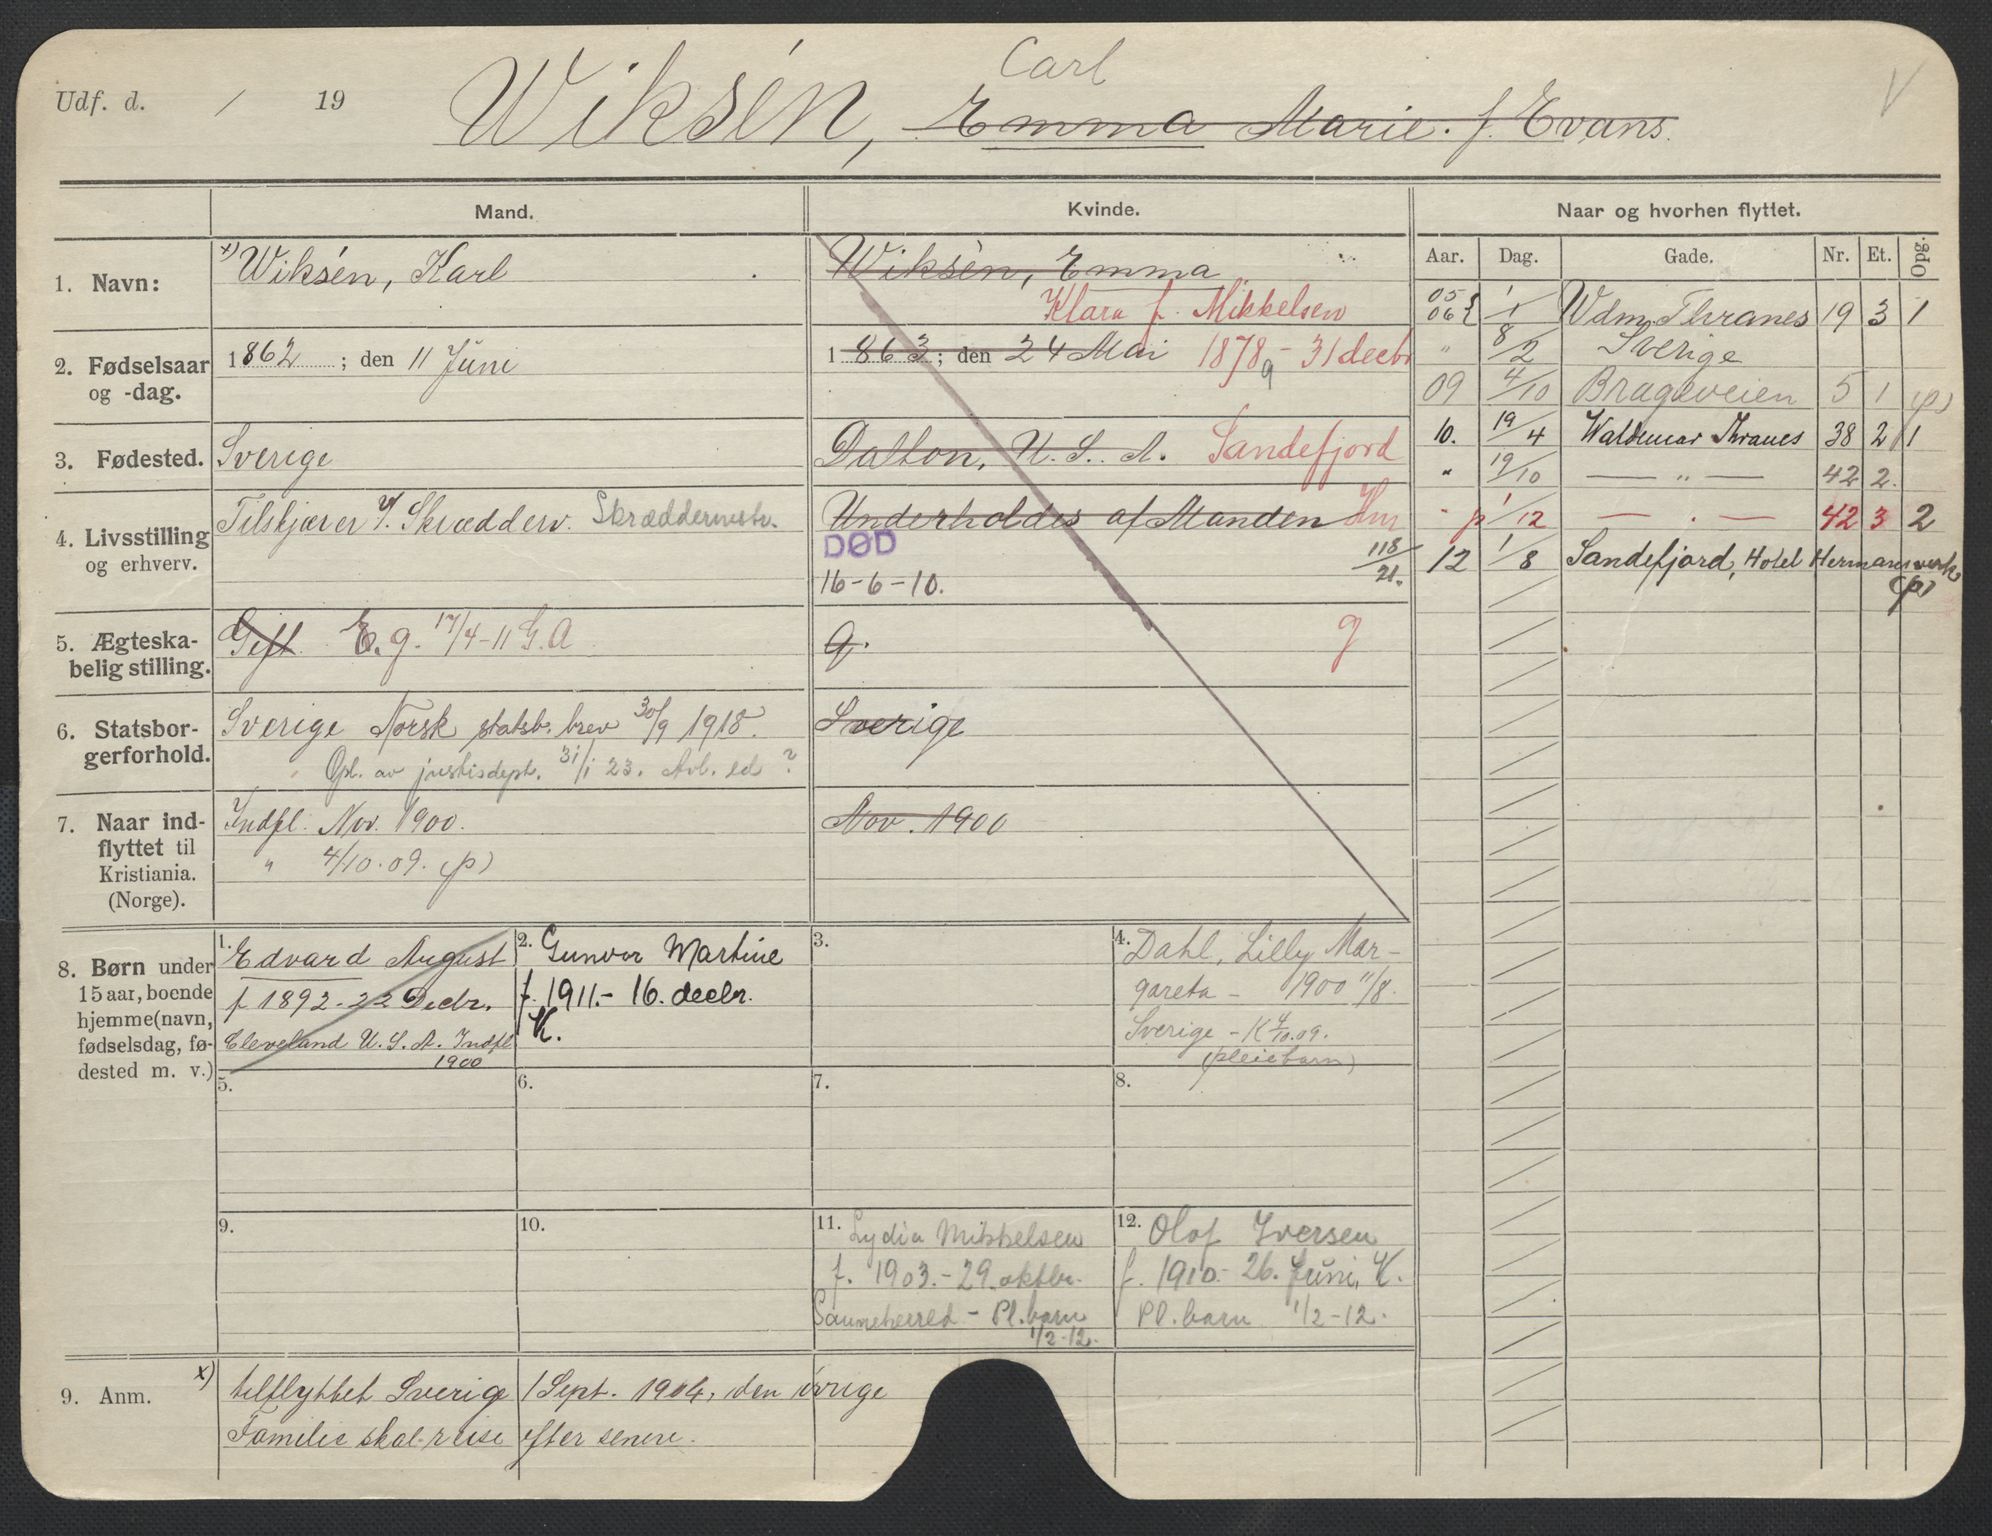 Udf. d. / 19
Wiksén, Carl
Emma Marie. f. Evans.
Mand.
Kvinde.
Naar og hvorhen flyttet.
Aar. Dag. Gade. Nr. Et. Opg.
1. Navn:
x) Wiksén, Karl
Wiksén, Emma
Klara f. Mikkelsen
2. Fødselsaar
og -dag.
1862; den 11 Juni
1863; den 24 Mai 1878 - 31 decbr
g
3. Fødested.
Sverige
Dalton, U. S. A. Sandefjord
4. Livsstilling
og erhverv.
Tilskjærer v/. Skrædderv. Skræddermstr.
Underholdes af Manden Hm
DØD
16-6-10.
118/21.
5. Ægteska-
belig stilling.
Gift E. g. 17/4-11 G. A
g. g
6. Statsbor-
gerforhold.
Sverige Norsk statsb. brev 30/9 1918.
Opl. av justisdept. 31/1 23. Avl. ed ?
Sverige
7. Naar ind-
flyttet til
Kristiania.
(Norge).
Indfl. Nov. 1900.
" 4/10.09. (p)
Nov. 1900
05 06 { 1/1 Wdm. Thranes 19 3 1
" 8/2 Sverige
09 4/10 Brageveien 5 1 (p)
10. 19/4 Waldemar Thranes 38 2 1
" 19/10 — " — 42 2.
- p 1/12 — . — 42 3 2
12 1/8 Sandefjord, Hotel Hermansverk
(p)
8. Børn under
15 aar, boende
hjemme (navn,
fødselsdag, fø-
dested m. v.)
1. Edvard August
f 1892. 22 Decbr.
Cleveland U. S. A. Indfl
1900
2. Gunvor Martine
f. 1911.- 16. decbr.
K.
3.
4. Dahl, Lilly Mar-
gareta - 1900 11/8.
Sverige - K 4/10.09.
(pleiebarn)
5.
6.
7.
8.
9.
10.
11. Lydia Mikkelsen
f. 1903.- 29. oktbr.
Sanneherred - Pl. barn
1/2-12.
12. Olaf Iversen
f. 1910.- 26. Juni, K.
Pl. barn 1/2-12.
9. Anm.
x) tilflyttet Sverige 1 Sept. 1904, den øvrige
Familie skal reise efter senere.